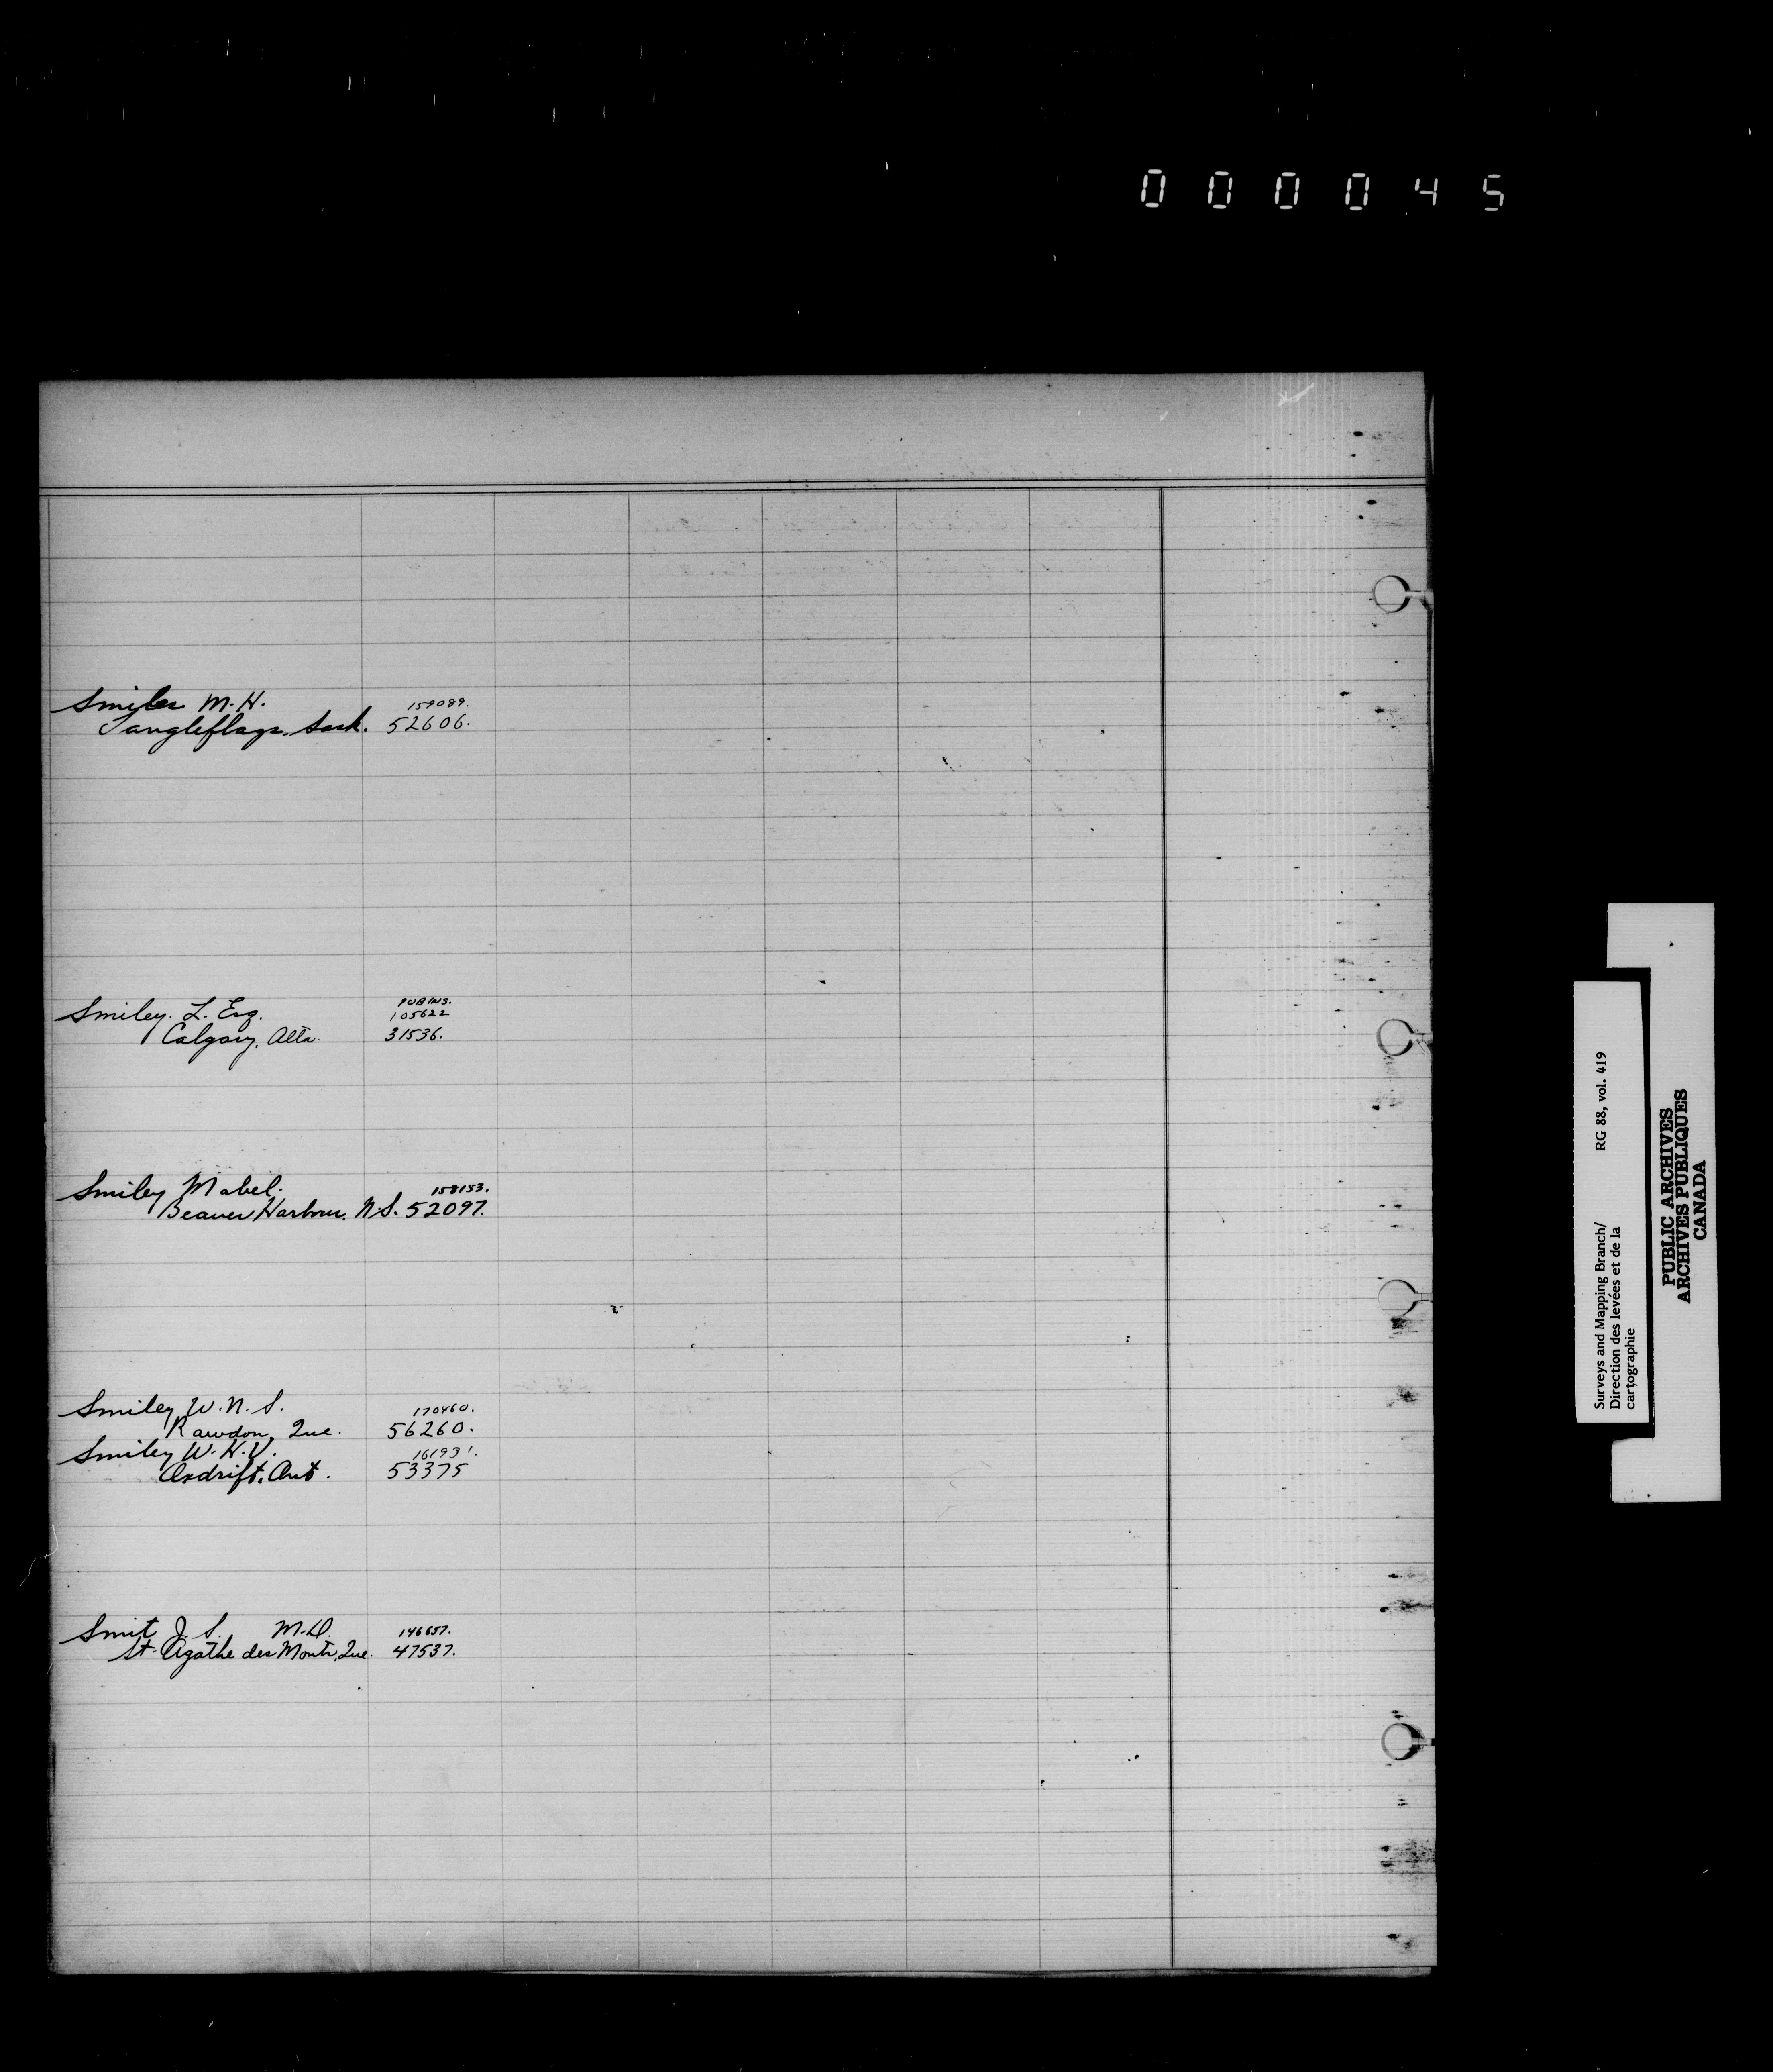 000045
Smiles M. H. 159089.
Tangleflags. Sask. 52606.
PUB INS.
Smiley. L. Esq. 105622
Calgary. Alta. 31536.
Smiley Mabel. 158153.
Beaver Harbour. N.S. 52097.
Smiley W. N. S. 170460.
Rawdon, Que. 56260.
Smiley W. H. V. 161931.
Ont. 53375
Smit J. S. M.D. 146657.
St. Agathe des Monts, Que. 47537.
Surveys and Mapping Branch/ RG 88, vol. 419
Direction des levées et de la
cartographie
PUBLIC ARCHIVES
ARCHIVES PUBLIQUES
CANADA